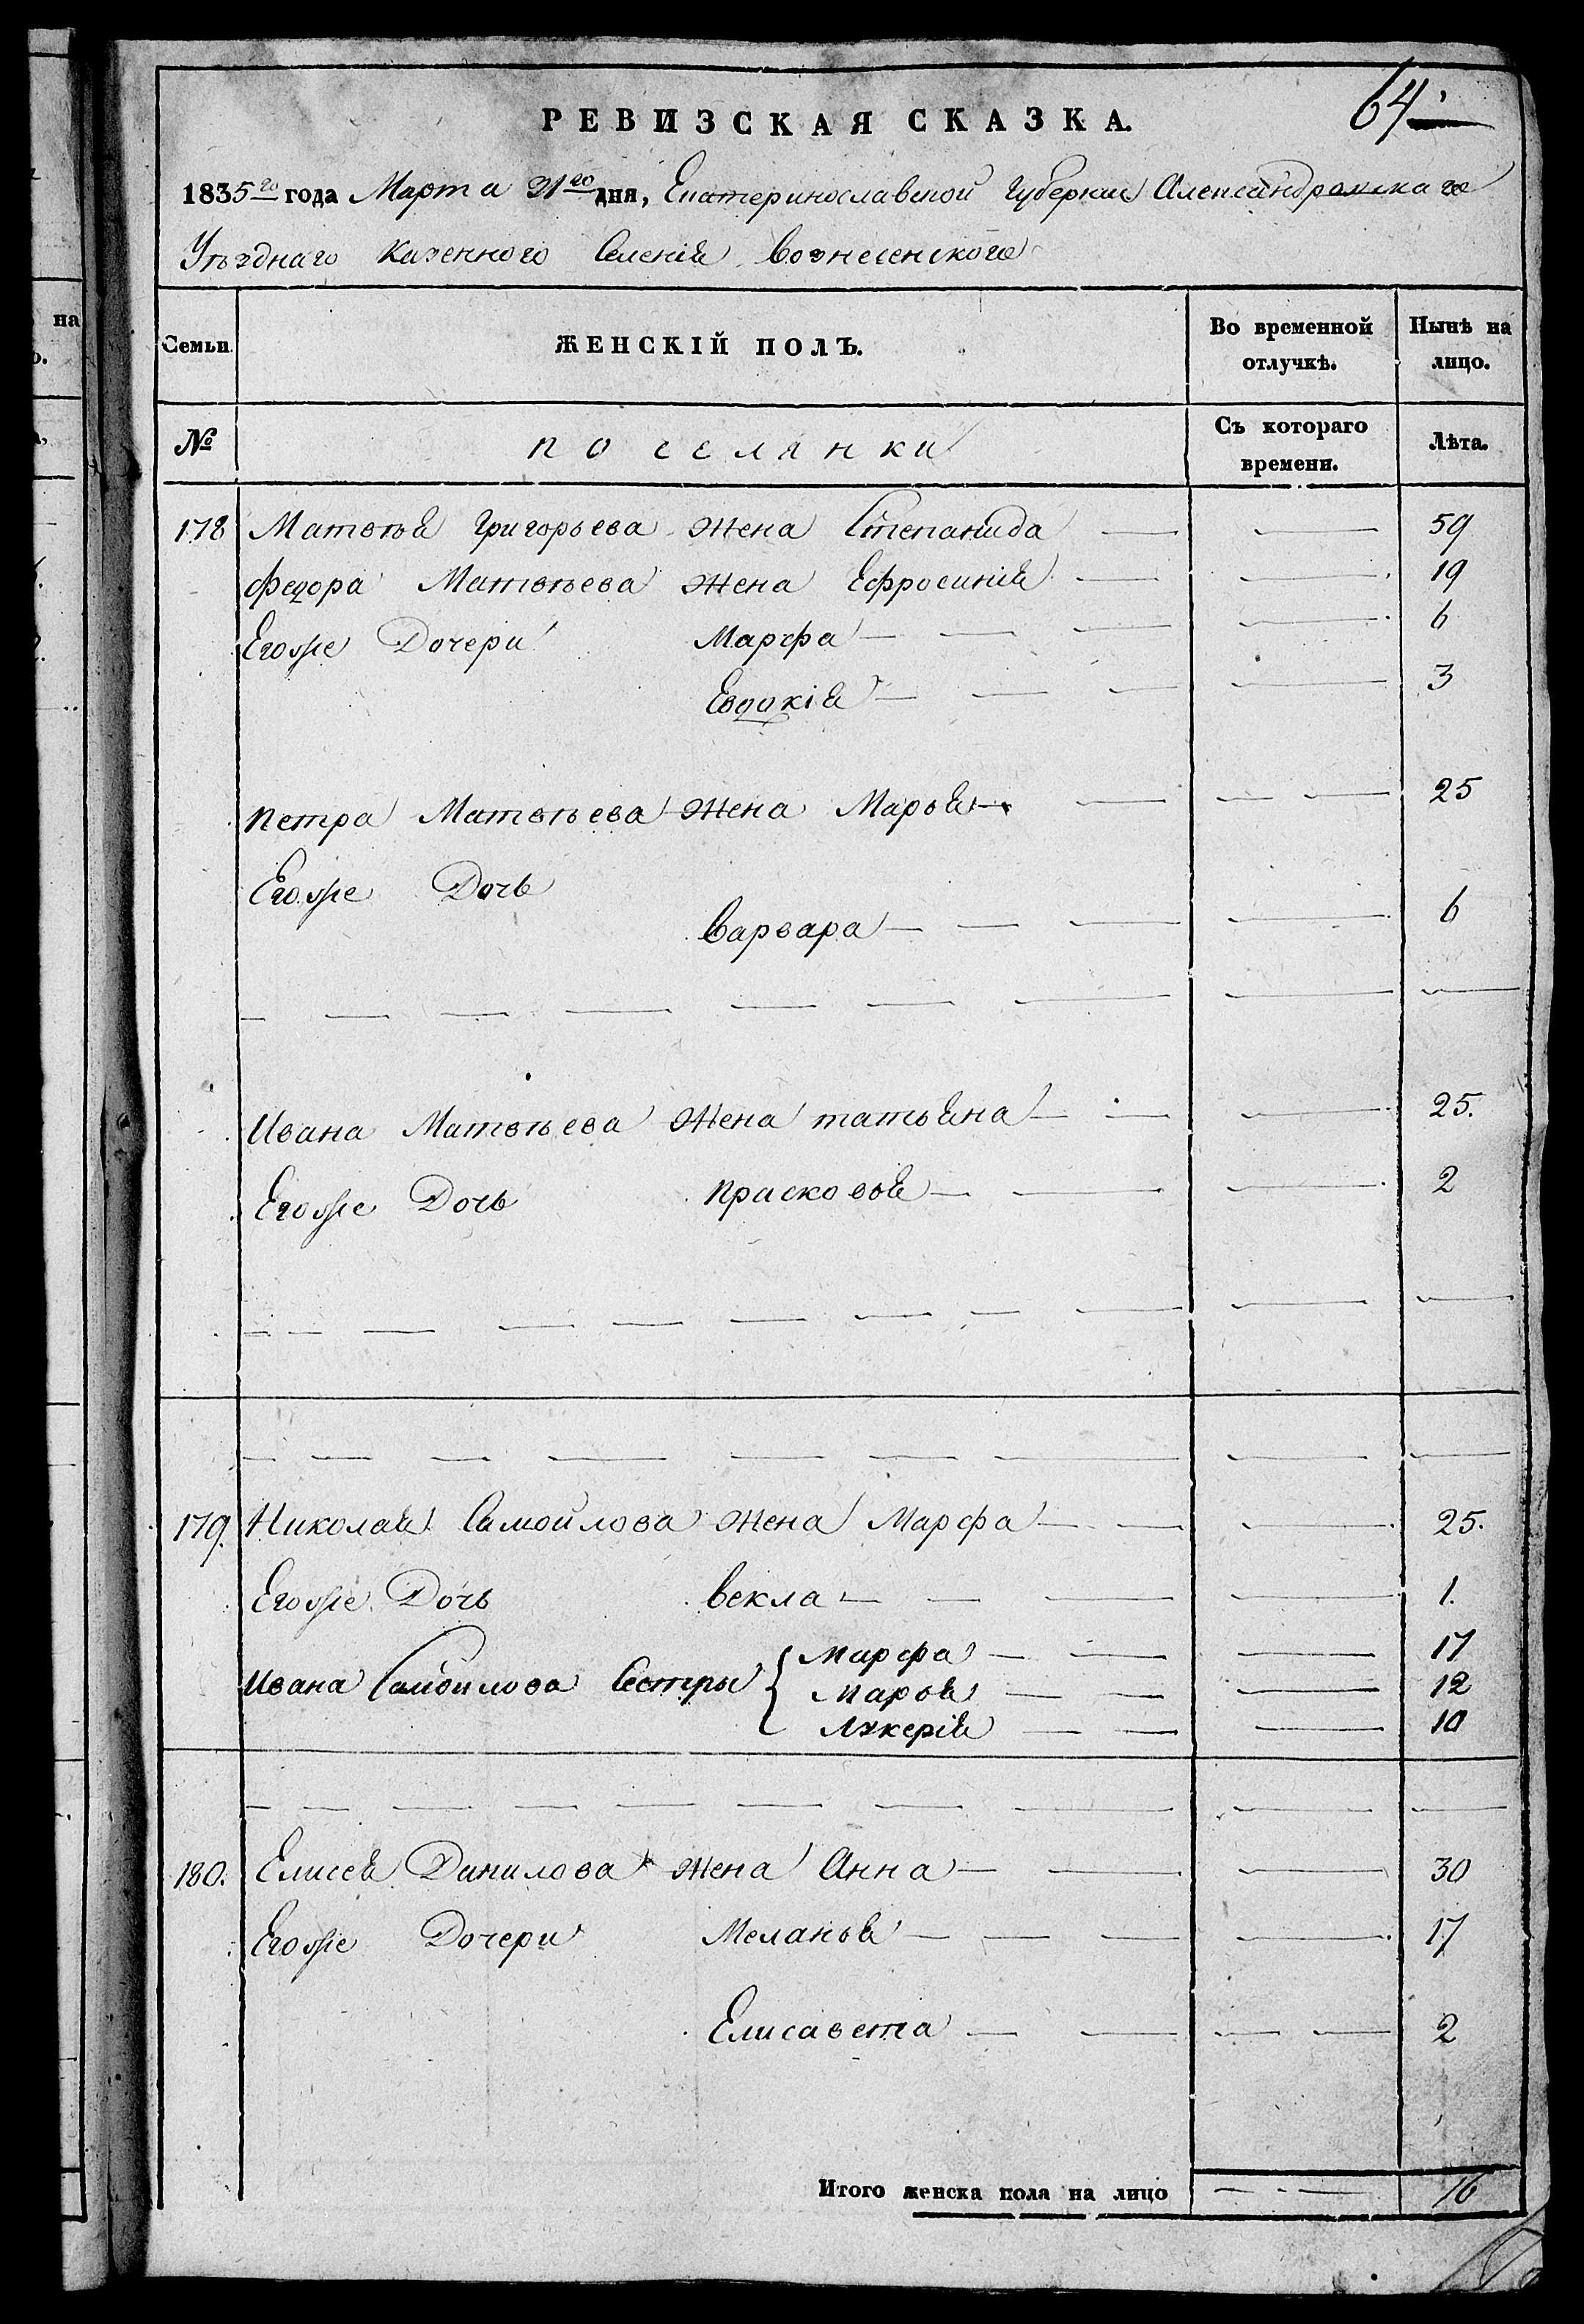 64.
РЕВИЗСКАЯ СКАЗКА.
1835го года Марта 31го дня, Екатеринославской Губернии Александровскаго
Уезднаго Казенного Селенія Вознесенского
Семьи. ЖЕНСКІЙ ПОЛЪ. Во временной отлучкѣ. Нынѣ на лицо.
№ поселянки Съ котораго времени. Лѣта.
178 Матвѣя Григорьева жена Степанида — — 59
Федора Матвѣева жена Ефросинія — — 19
Егоже Дочери Марфа — — — — 6
Евдокія — — — — 3
Петра Матвѣева жена Марья — — — — 25
Егоже Дочь
Варвара — — — — 6
Ивана Матвѣева жена татьяна — — — 25.
Егоже Дочь Прасковья — — — 2
179. Николая Самойлова жена Марфа — — — 25.
Егоже Дочь Векла — — — — 1.
Ивана Самойлова Сестры { Марфа — — — 17
Марья — — — 12
Лукерія — — — 10
180. Елисея Данилова жена Анна — — — 30
Егоже Дочери Меланья — — — — 17
Елисавета — — — — 2
Итого женска пола на лицо — - — 16